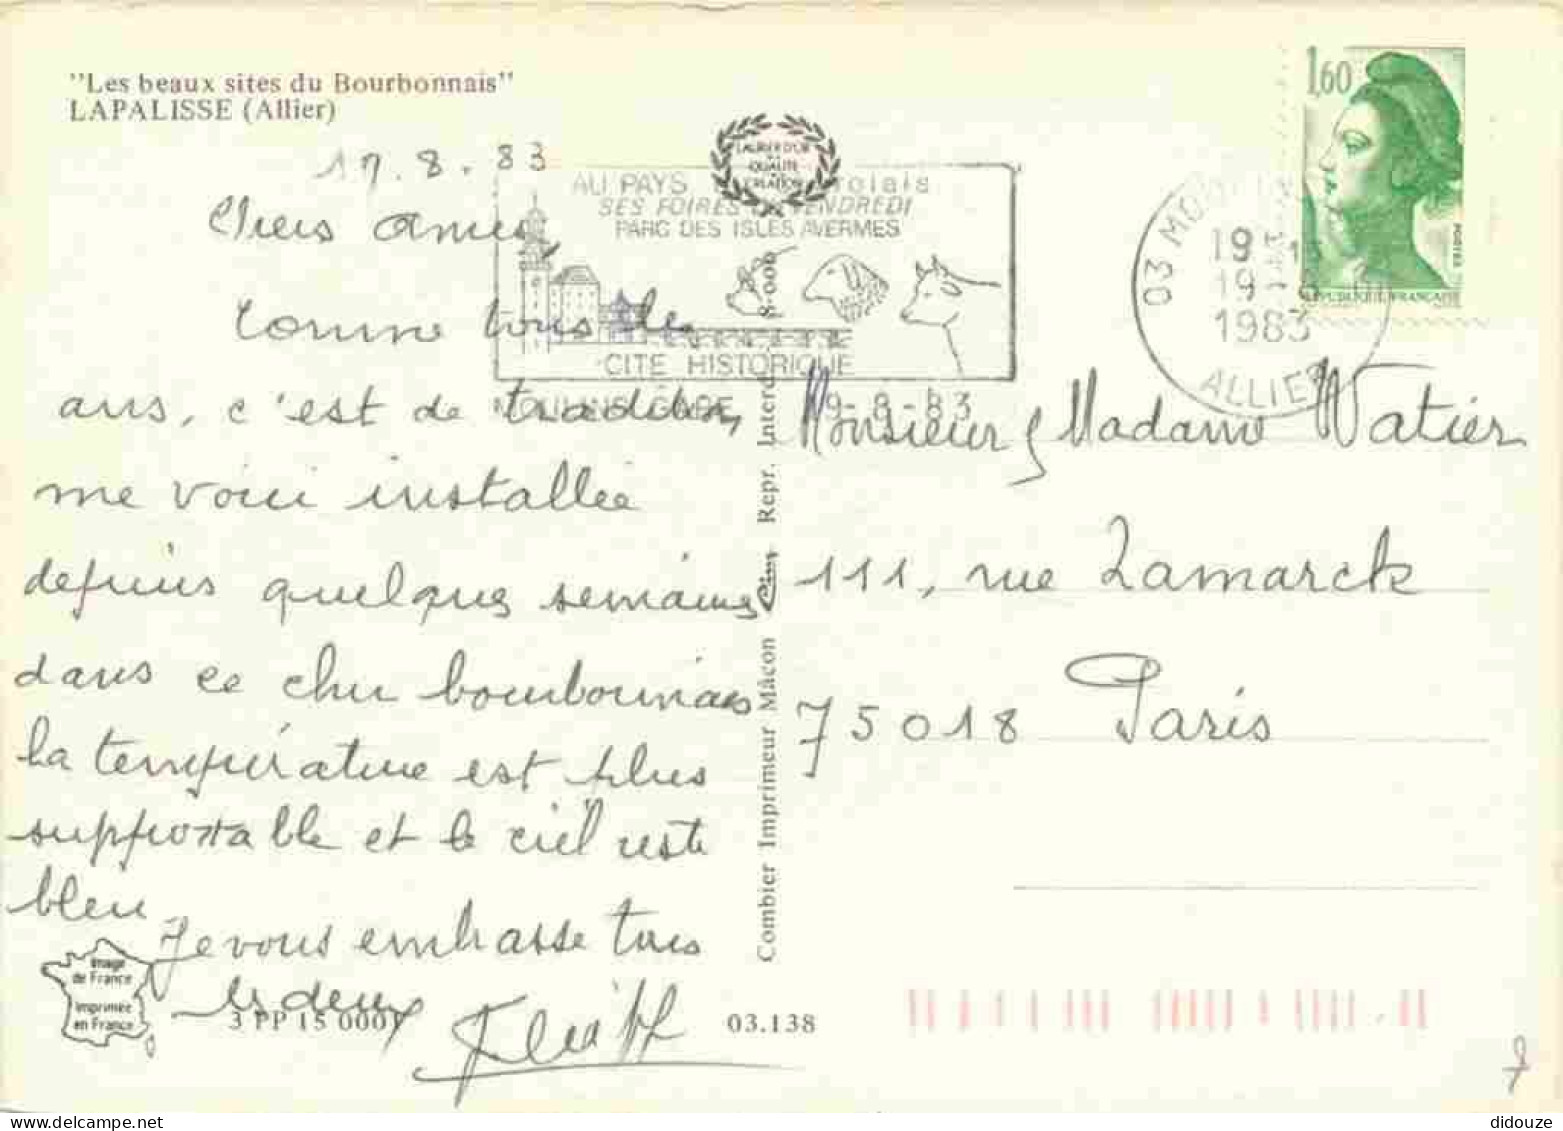 "Les beaux sites du Bourbonnais"
LAPALISSE (Allier)
17.8.83
Chers amis,
Comme tous les
ans, c'est de tradition,
me voici installée
depuis quelques semaines
dans ce cher bourbonnais
la température est plus
supportable et le ciel reste
bleu
Je vous embrasse tous
les deux
Image
de France
Imprimée
en France
3 PP 15 0001
03.138
LAURIER D'OR
QUALITE
CREATION
AU PAYS
SES FOIRES DU VENDREDI
PARC DES ISLES AVERMES
CITE HISTORIQUE
GARE 19-8-83
Combier Imprimeur Mâcon Cim Repr. Interd. 8-006
03
19
19
1983
ALLIER
1,60
POSTES
REPUBLIQUE FRANÇAISE
Monsieur & Madame Watier
111, rue Lamarck
75018 Paris
7
didouze